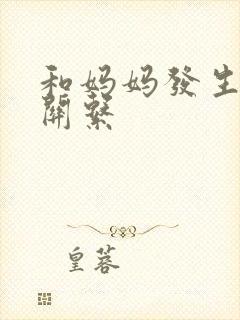 和妈妈發生
關繫
皇蓉